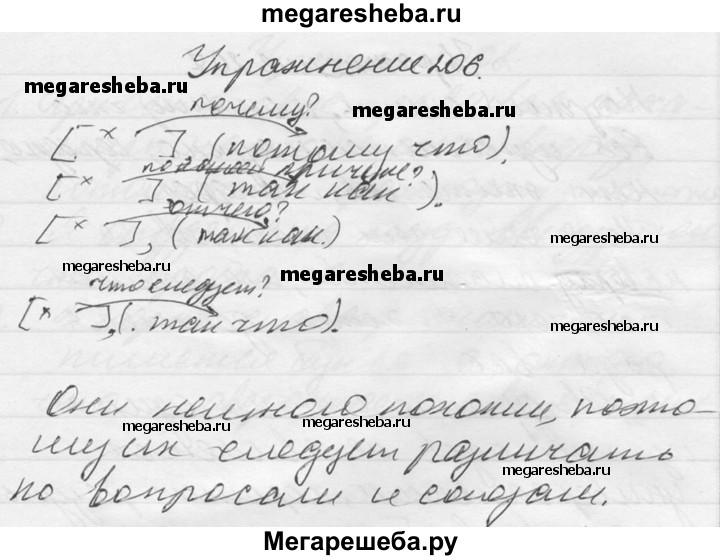 megaresheba.ru
Упражнение 206.
megaresheba.ru
почему?
megaresheba.ru
[ x ], (потому что).
по какой причине?
[ x ], (так как).
megaresheba.ru
отчего?
[ x ], (так как.)
megaresheba.ru
megaresheba.ru
megaresheba.ru
что следует?
[ x ], (. так что).
megaresheba.ru
Они немного похожи, поэто-
megaresheba.ru
му их следует различать
megaresheba.ru
по вопросам и союзам.
Мегарешеба.ру